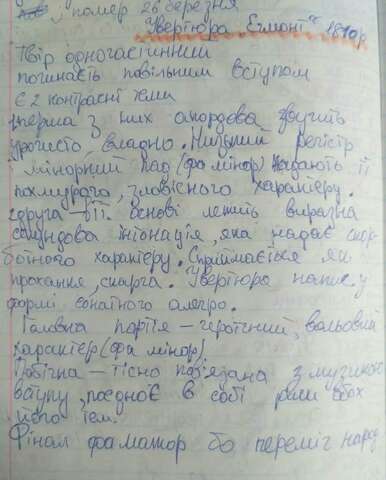 помер 26 березня
Увертюра „Егмонт" 1810р
Твір одночастинний
починається повільним вступом
Є 2 контрасні теми
перша з них акордова звучить
урочисто, владно. Низький регістр
мінорний лад (фа мінор) надають її
похмурого, зловісного характеру.
друга – її основі лежить виразна
секундова інтонація, яка надає скор-
ботного характеру. Сприймається як
прохання, скарга. Увертюра напис. у
формі сонатного алегро.
Головна партія – героїчний, вольовий
характер (фа мінор)
Побічна – тісно пов'язана з музикою
вступу, поєднує в собі риси обох
його тем.
Фінал фа мажор бо переміг народ